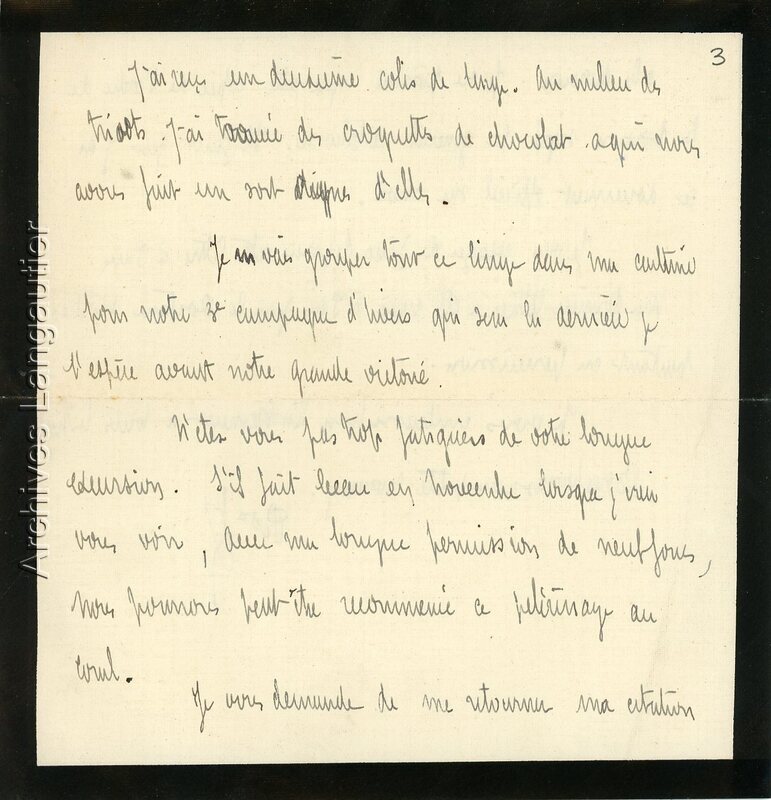 3
J'ai reçu un deuxième colis de linge. Au milieu des
tricots j'ai trouvé des croquettes de chocolat a qui nous
avons fait un sort dignes d'elles.
Je vais grouper tout ce linge dans ma cantine
pour notre 3e campagne d'hivers qui sera la dernière je
l'espère avant notre grande victoire.
N'êtes vous pas trop fatiguées de votre longue
excursion. S'il fait beau en novembre lorsque j'irai
vous voir, avec ma longue permission de neuf jours,
nous pourrons peut être recommencé ce pélérinage au
Je vous demande de me retourner ma citation
Archives Laingautier